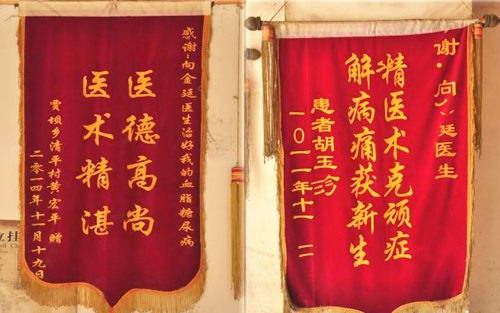 感谢:向金廷医生治好我的血脂糖尿病
医德高尚
医术精湛
贾坝乡清平村黄宏平 赠
二零一四年十一月十九日
谢·向 廷医生
精医术克顽症
解病痛获新生
患者胡玉
一0一一年十一 二